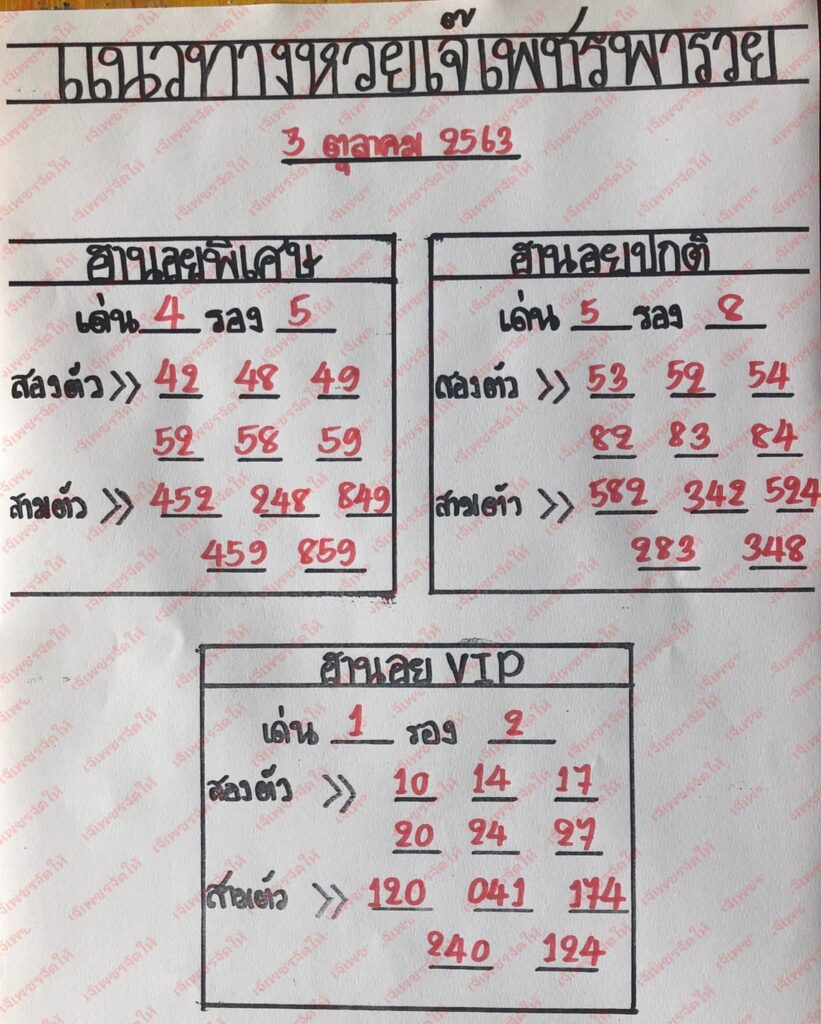 แนวทางหวยเจ๊เพชรพารวย
3 ตุลาคม 2563
ฮานอยพิเศษ
เด่น 4 รอง 5
สองตัว >> 42 48 49
52 58 59
สามตัว >> 452 248 849
459 859
ฮานอยปกติ
เด่น 5 รอง 8
สองตัว >> 53 52 54
82 83 84
สามตัว >> 582 342 524
283 348
ฮานอย VIP
เด่น 1 รอง 2
สองตัว >> 10 14 17
20 24 27
สามตัว >> 120 041 174
240 124
เจ๊เพชรจัดให้